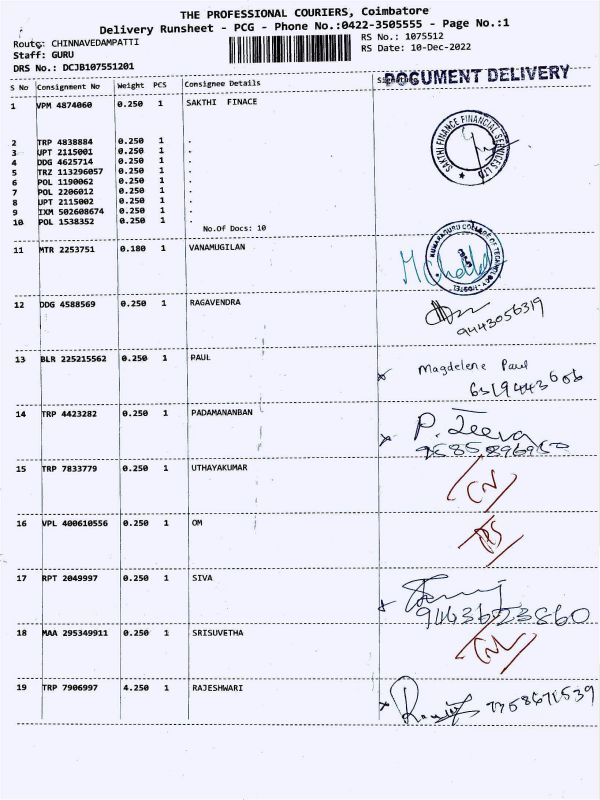 THE PROFESSIONAL COURIERS, Coimbatore
Delivery Runsheet - PCG - Phone No.:0422-3505555 - Page No.:1
Route: CHINNAVEDAMPATTI
RS No.: 1075512
Staff: GURU
RS Date: 10-Dec-2022
DRS No.: DCJB107551201
S No Consignment No Weight PCS Consignee Details Signature
DOCUMENT DELIVERY
1 VPM 4874060 0.250 1 SAKTHI FINACE
SAKTHI FINANCE FINANCIAL SERVICES LTD
2 TRP 4838884 0.250 1 .
3 UPT 2115001 0.250 1 .
4 DDG 4625714 0.250 1 .
5 TRZ 113296057 0.250 1 .
6 POL 1190062 0.250 1 .
7 POL 2206012 0.250 1 .
8 UPT 2115002 0.250 1 .
9 IXM 502608674 0.250 1 .
10 POL 1538352 0.250 1 .
No.Of Docs: 10
11 MTR 2253751 0.180 1 VANAMUGILAN
KUMARAGURU COLLEGE OF TECHNOLOGY
12 DDG 4588569 0.250 1 RAGAVENDRA
9443056319
13 BLR 225215562 0.250 1 PAUL
Magdelene Paul
14 TRP 4423282 0.250 1 PADAMANANBAN
P. Jeeva
9585896950
15 TRP 7833779 0.250 1 UTHAYAKUMAR
16 VPL 400610556 0.250 1 OM
17 RPT 2049997 0.250 1 SIVA
9443623860
18 MAA 295349911 0.250 1 SRISUVETHA
19 TRP 7906997 4.250 1 RAJESHWARI